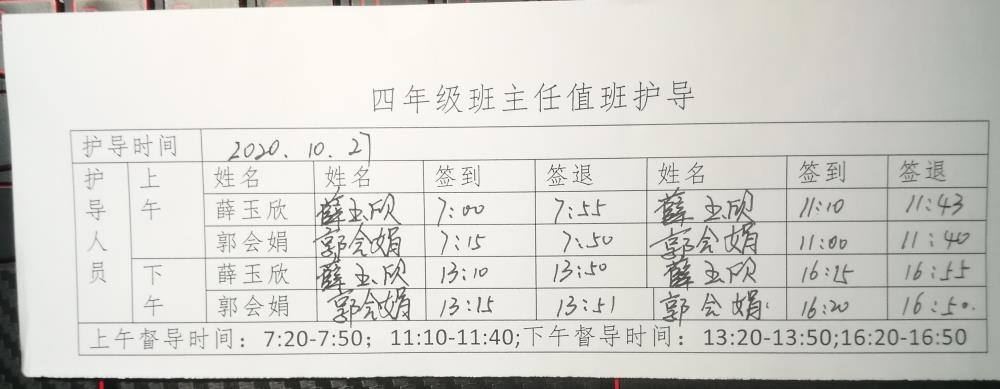 四年级班主任值班护导
护导时间 2020.10.27
护导人员 上午 姓名 姓名 签到 签退 姓名 签到 签退
薛玉欣 薛玉欣 7:00 7:55 薛玉欣 11:10 11:43
郭会娟 郭会娟 7:15 7:50 郭会娟 11:00 11:40
下午 薛玉欣 薛玉欣 13:10 13:50 薛玉欣 16:15 16:55
郭会娟 郭会娟 13:15 13:51 郭会娟 16:20 16:50.
上午督导时间：7:20-7:50；11:10-11:40;下午督导时间：13:20-13:50;16:20-16:50